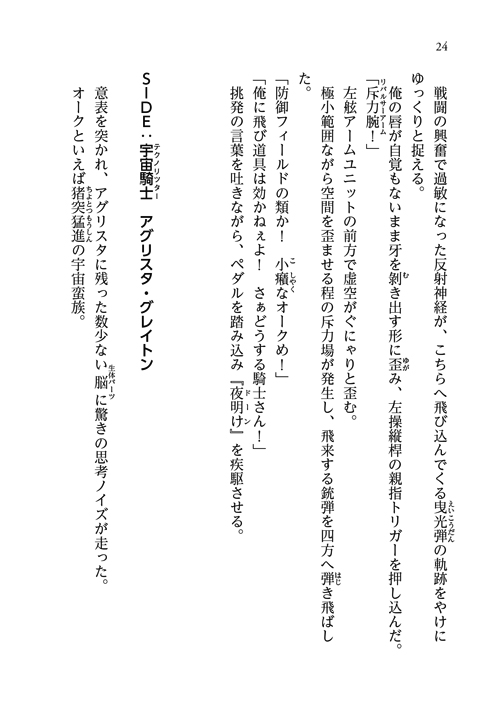 24
戦闘の興奮で過敏になった反射神経が、こちらへ飛び込んでくる曳光弾の軌跡をやけに
ゆっくりと捉える。
俺の唇が自覚もないまま牙を剝き出す形に歪み、左操縦桿の親指トリガーを押し込んだ。
「斥力腕！」
左舷アームユニットの前方で虚空がぐにゃりと歪む。
極小範囲ながら空間を歪ませる程の斥力場が発生し、飛来する銃弾を四方へ弾き飛ばし
た。
「防御フィールドの類か！　小癪なオークめ！」
「俺に飛び道具は効かねぇよ！　さぁどうする騎士さん！」
挑発の言葉を吐きながら、ペダルを踏み込み『夜明け』を疾駆させる。
SIDE：宇宙騎士　アグリスタ・グレイトン
意表を突かれ、アグリスタに残った数少ない脳に驚きの思考ノイズが走った。
オークといえば猪突猛進の宇宙蛮族。